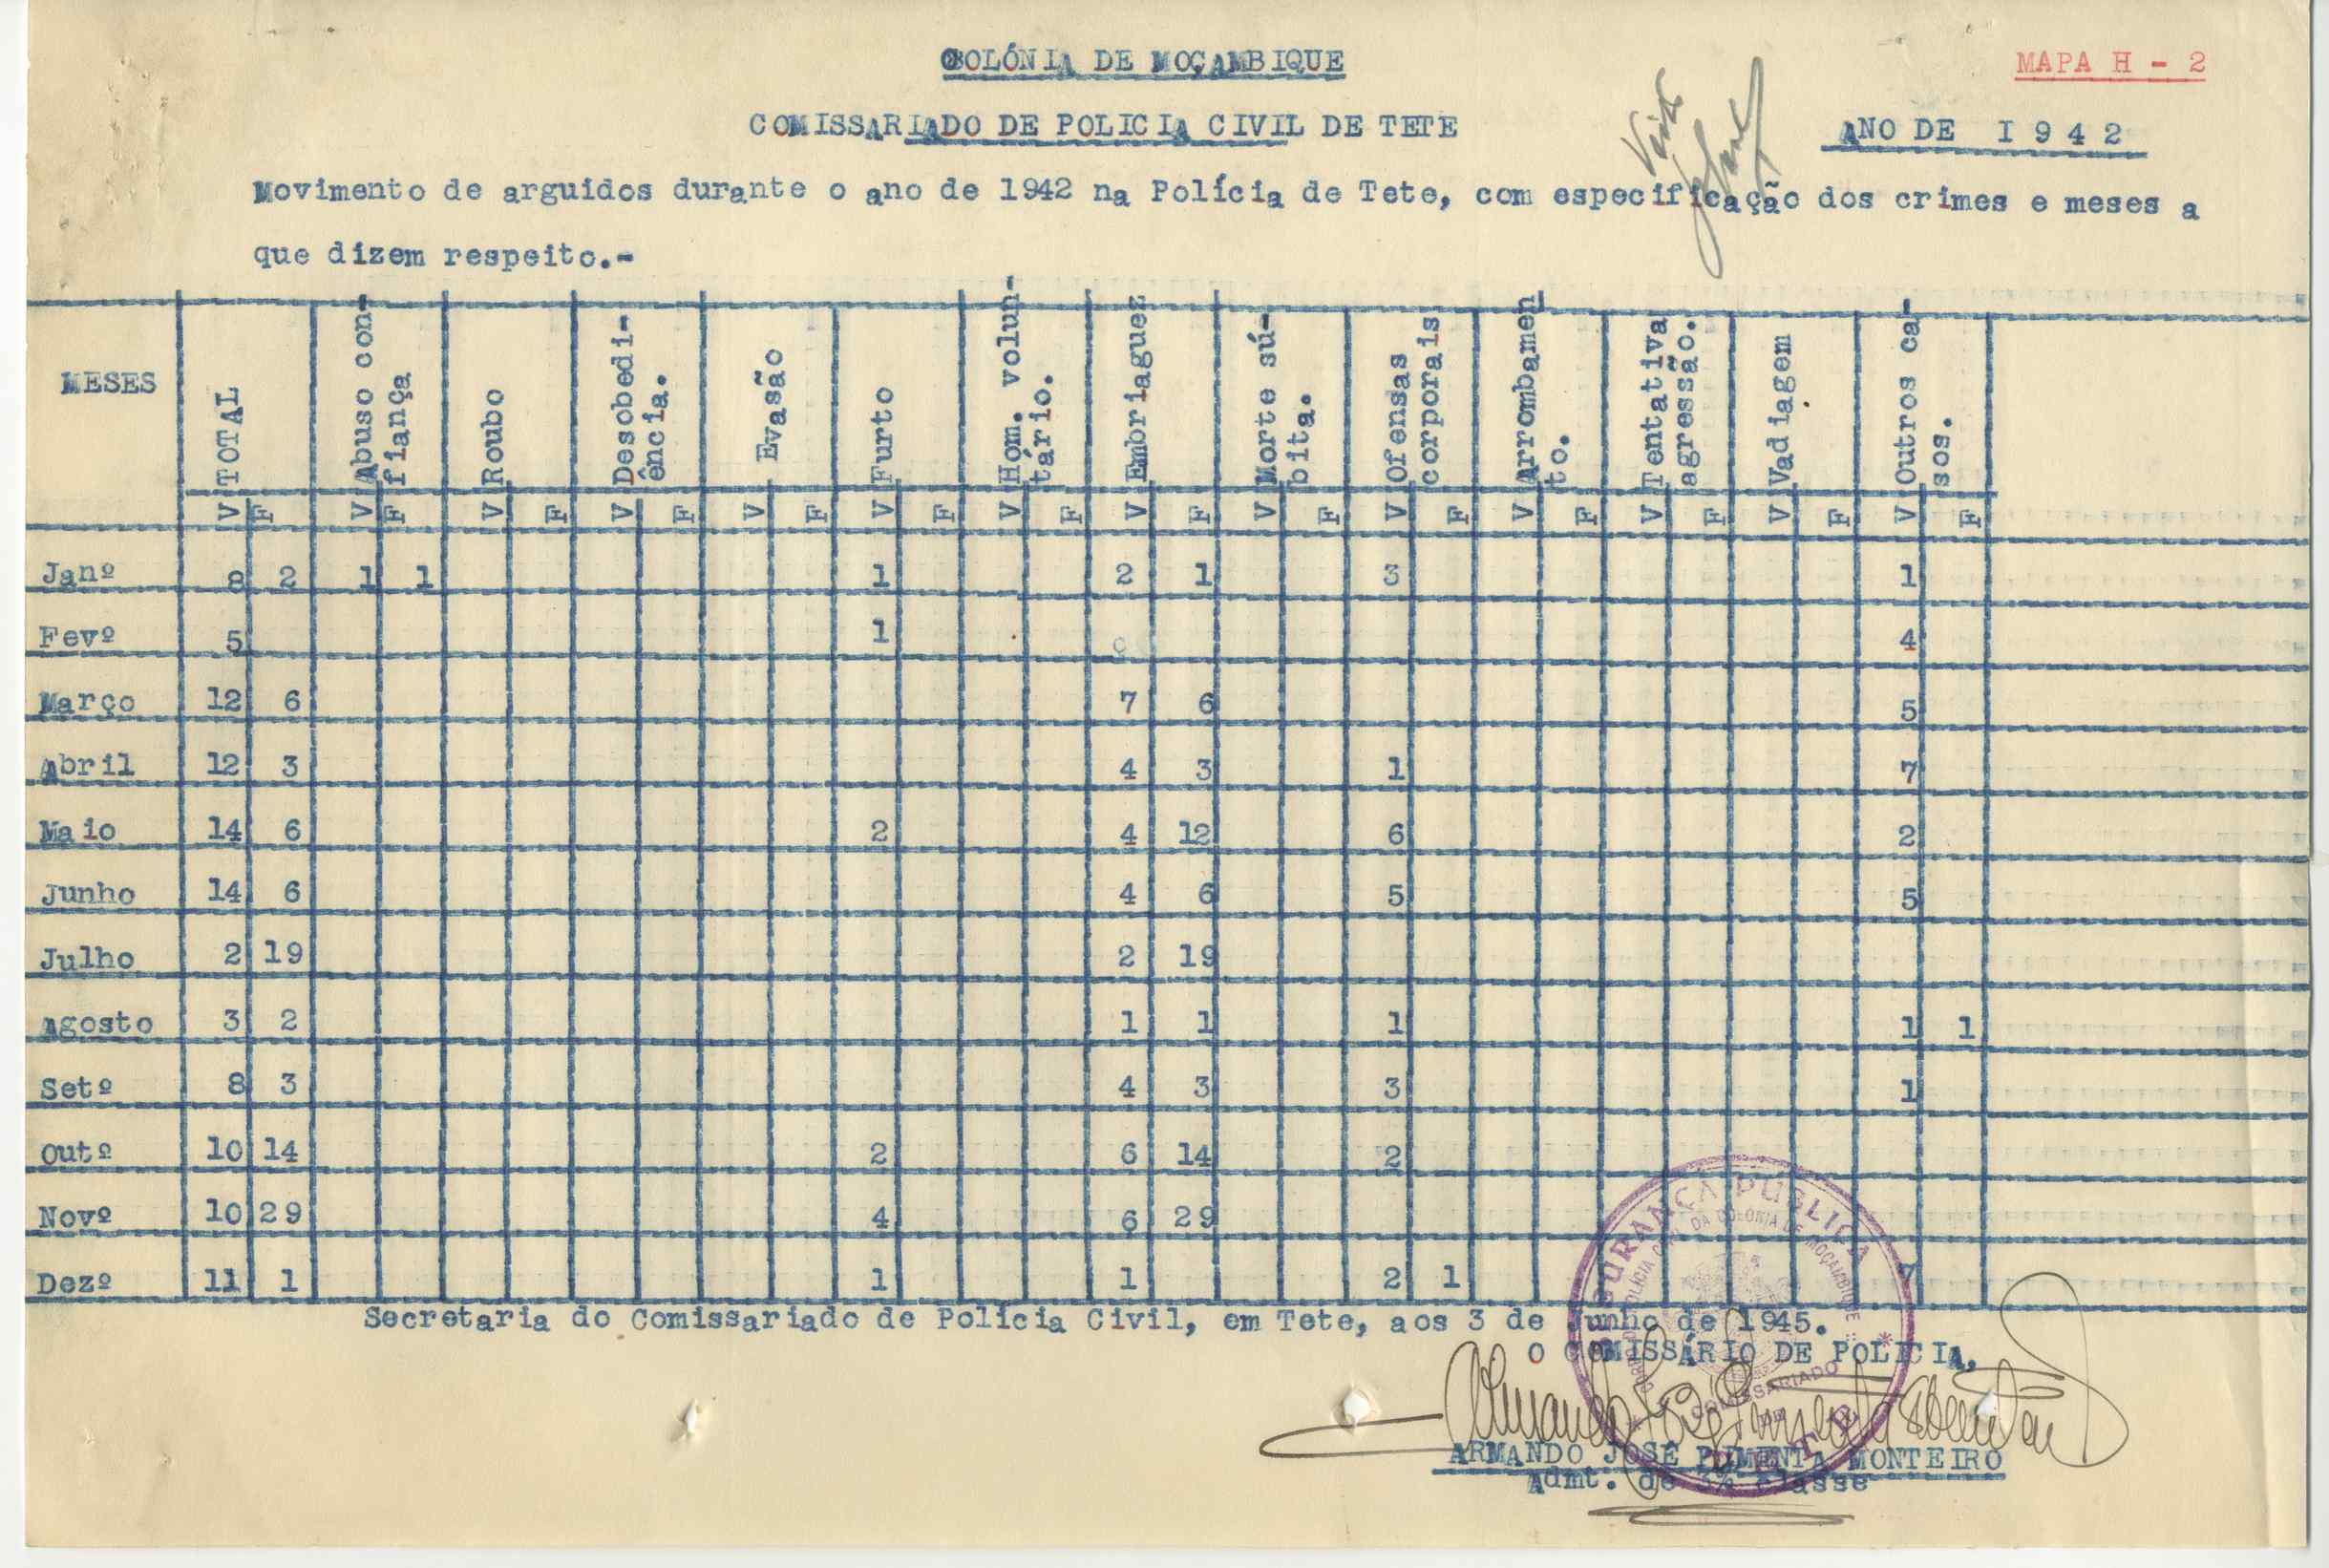 COLÓNIA DE MOÇAMBIQUE
MAPA H - 2
COMISSARIADO DE POLICIA CIVIL DE TETE
ANO DE I 9 4 2
Visto
Movimento de arguidos durante o ano de 1942 na Polícia de Tete, com especificação dos crimes e meses a
que dizem respeito.-
MESES TOTAL Abuso con- Roubo Desobedi- Evasão Furto Hom. volun- Embriaguez Morte sú- Ofensas Arrombamen Tentativa Vadiagem Outros ca-
fiança ência. tário. bita. corporais to. agressão. sos.
V F V F V F V F V F V F V F V F V F V F V F V F V F V F
Janº 8 2 1 1 1 2 1 3 1
Fevº 5 1 4
Março 12 6 7 6 5
Abril 12 3 4 3 1 7
Maio 14 6 2 4 12 6 2
Junho 14 6 4 6 5 5
Julho 2 19 2 19
Agosto 3 2 1 1 1 1 1
Setº 8 3 4 3 3 1
Outº 10 14 2 6 14 2
Novº 10 29 4 6 29
Dezº 11 1 1 1 2 1 7
Secretaria do Comissariado de Polícia Civil, em Tete, aos 3 de Junho de 1945.
O COMISSÁRIO DE POLICIA,
ARMANDO JOSÉ PIMENTA MONTEIRO
Admt. de 3ª classe
SEGURANÇA PUBLICA
POLICIA CIVIL DA COLONIA DE MOÇAMBIQUE
COMISSARIADO
DE
TETE